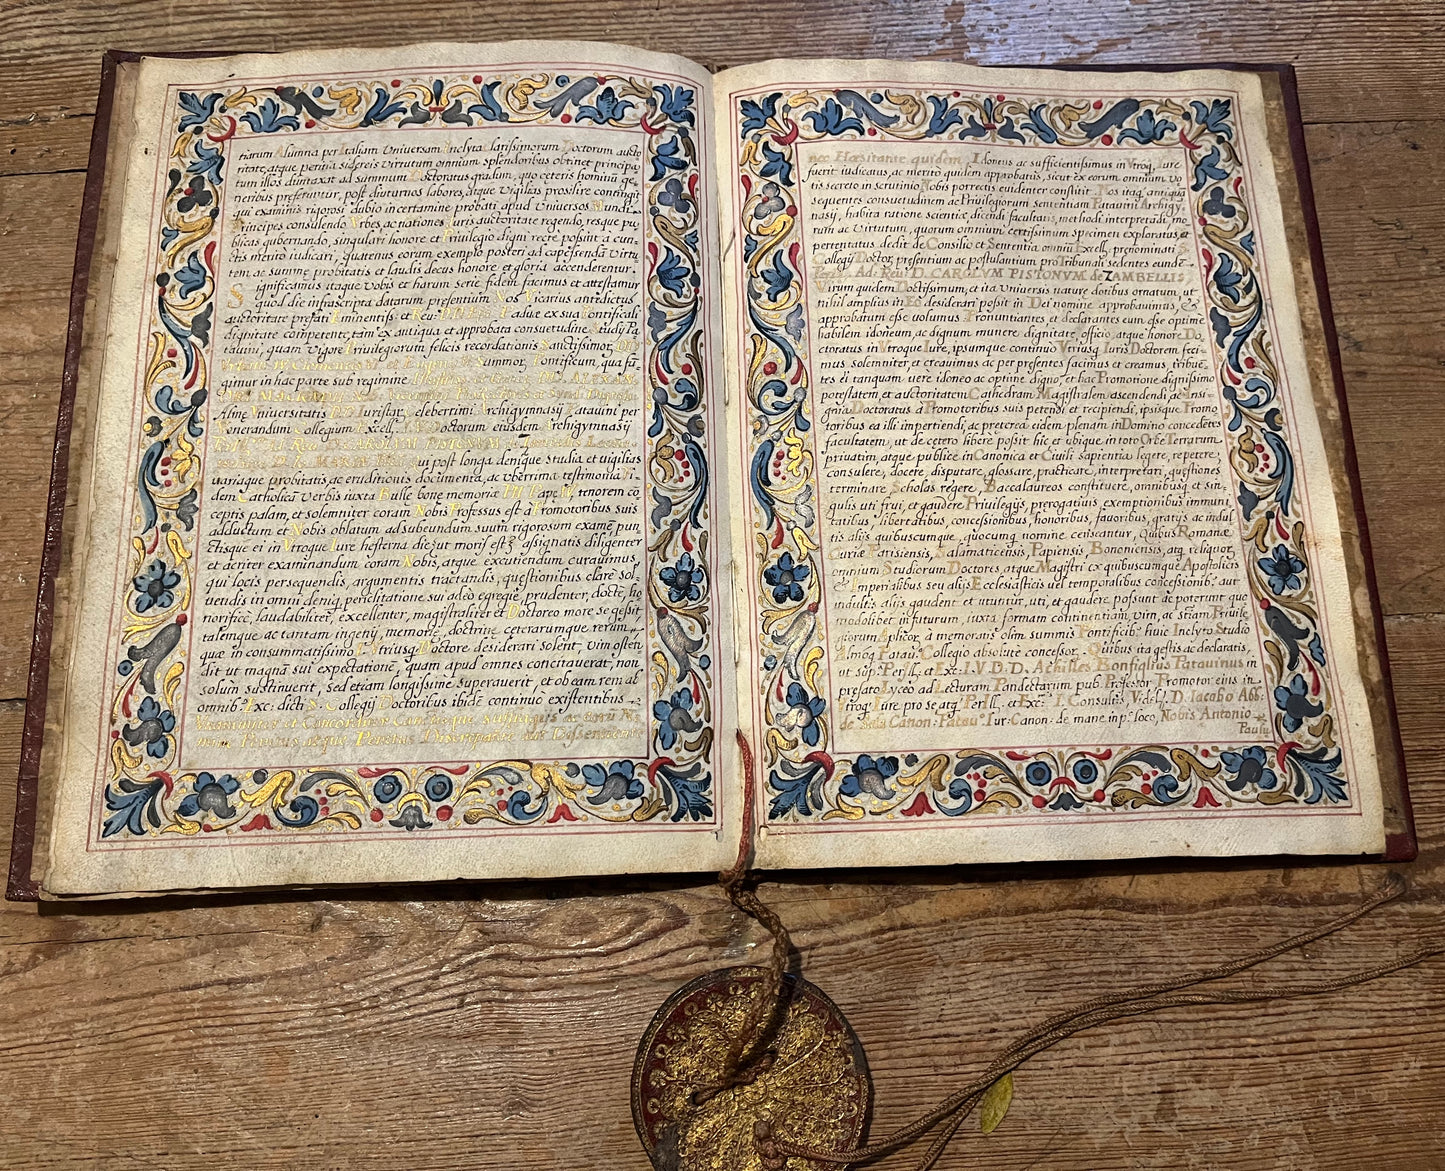 tiarum Alumna per Italiam Universam Inclyta Clarissimorum Doctorum aucto
ritate, atque peritia sidereis virtutum omnium splendoribus obtinet principa
tum illos dumtaxat ad summum Doctoratus gradum, quo ceteris hominũ ge-
neribus preferuntur, post diuturnos labores, atque vigilias prosilire contingit
qui examinis rigorosi dubio in certamine probati apud Universos Mundi
Principes consulendo Urbes ac nationes Iuris auctoritate regendo, resque pu
blicas gubernando, singulari honore et Privilegio digni recte possint a cun-
ctis merito iudicari, quatenus eorum exemplo posteri ad capessendã virtu
tem ac summe probitatis et laudis decus honore et gloria accenderentur.
Significamus itaque vobis et harum serie fidem facimus et attestamur
quod die infrascripta datarum presentium Nos Vicarius antedictus
auctoritate prefati Eminentiss. et Reu: D.D. Epi Paduæ ex sua Pontificali
dignitate competente, tam ex antiqua et approbata consuetudine Study Pa
tauini, quam vigore Priuilegiorum felicis recordationis Sanctissimor. DD
Urbani IV Clementis VI et Eugenij IV Summor. Pontificum, qua fũ-
gimur in hac parte sub regimine DD. ALEXAN
DRI
Almę Universitatis D.D. Iuristar. celeberrimi Archigymnasÿ Patauini per
Venerandum Collegium Excell. I.V. Doctorum eiusdem Archigymnasÿ
Reu: CAROLUM PISTONUM
D. MARIÆ qui post longa denique studia et vigilias
variaque probitatis ac eruditionis documenta, ac vberrima testimonia Fi-
dem Catholicã verbis iuxta Bullę bonę memorię PII Papę IV tenorem co
ceptis palam, et solemniter coram Nobis Professus est à Promotoribus suis
adductum et Nobis oblatum ad subeundum suum rigorosum examẽ pun
ctisque ei in Utroque Iure hesterna die, ut moris est assignatis diligenter
et acriter examinandum coram Nobis, atque excutiendum curauimus,
qui locis persequendis, argumentis tractandis, quęstionibus clarè sol-
uendis in omni denique periclitatione sui adeò egregiè, prudenter, doctè, ho
norificè, laudabiliter, excellenter, magistraliter et Doctoreo more se gessit
talemque ac tantam ingenÿ, memorię, doctrinę ceterarumque rerum,
quæ in consummatissimo I. Utriusq Doctore desiderari solent, vim osten
dit ut magnã sui expectationẽ, quam apud omnes concitauerat, non
solum sustinuerit, sed etiam longissimè superauerit, et ob eam rem ab
omnib. Exc: dicti S. Collegÿ Doctoribus ibidẽ continuò existentibus
Unanimiter et Concorditer Cunctisque suffragÿs ac eorũ Ne
mine Penitus atque Penitus Discrepante aut Dissentiente
nec Hæsitante quidem Idoneus ac sufficientissimus in Vtroq. Iure
fuerit iudicatus, ac meritò quidem approbatus, sicut ex eorum omnium vo
tis secretò in scrutinio Nobis porrectis euidenter constitit. Nos itaq. antiquã
sequentes consuetudinem ac Priuilegiorum sententiam Patauini Archigym
nasÿ, habita ratione scientiæ, dicendi facultatis, methodi interpretãdi, mo
rum ac Virtutum, quorum omnium certissimum specimen exploratus, et
pertentatus dedit de Consilio et Sententia omniũ Excell. prenominati S.
Collegÿ Doctor. presentium ac postulantium proTribunali sedentes eundẽ
Perill. Ad. Reu. D. CAROLUM PISTONUM de ZAMBELLIS
Virum quidem Doctissimum, et ita Universis naturæ doribus ornatum, ut
nihil amplius in Eo desiderari possit in Dei nomine approbauimus, et
approbatum esse volumus Pronuntiantes et declarantes eum esse optimè
habilem idoneum, ac dignum munere dignitate, officio, atque honore Do
ctoratus in Vtroque Iure, ipsumque continuò Vtriusq. Iuris Doctorem feci
mus solemniter, et creauimus ac per presentes facimus et creamus, tribuẽ-
tes ei tanquam uerè idoneo ac optimè digno, et hac Promotione dignissimo
potestatem, et auctoritatem Cathedram Magistralem ascendendi, ac Insi-
gnia Doctoratus à Promotoribus suis petendi et recipiendi, ipsisque Promo
toribus ea illi impertiendi, ac preterea eidem plenam in Domino concedetes
facultatem, ut de cetero liberè possit hic et ubique in toto Orbe Terrarum
priuatim, atque publicè in Canonica et Ciuili sapientia legere, repetere,
consulere, docere, disputare, glossare, practicare, interpretari, quęstiones
terminare, Scholas regere, Baccalaureos constituere, omnibusq et sin-
gulis uti frui, et gaudere Priuilegÿs, prerogatiuis exemptionibus immuni
tatibus, libertatibus, concessionibus, honoribus, fauoribus, gratÿs ac indul
tis alÿs quibuscumque, quocumq nomine censeantur, quibus Romanæ
Curiæ Parisiensis, Salamaticensis, Papiensis, Bononiensis, atq. reliquor.
omnium Studiorum Doctores, atque Magistri ex quibuscumque Apostolicis
Imperialibus seu alÿs Ecclesiasticis uel temporalibus concesionib. aut
indultis alÿs gaudent et utuntur, uti, et gaudere possunt ac poterunt quo
modolibet in futurum, iuxta formam continentiam, vim, ac Seriam Priuile
giorum Aplicor. à memoratis olim summis Pontificib. huic Inclyto Studio
Almoq. Patau. Collegio absolutè concessor. Quibus ita gestis ac declaratis,
ut sup. Perill. et Exc. I.V.D.D. Achilles Bonfiglius Patauinus in
prefato Lyceo ad Lecturam Pandectarum pub. Professor Promotor eius in
Vtroq Iure pro se atq Perill. et Exc: I. Consultis, Videl. D. Iacobo Abb:
de Sala Canon: Patau. Iur: Canon: de mane inp. loco, Nobis Antonio
Paulu